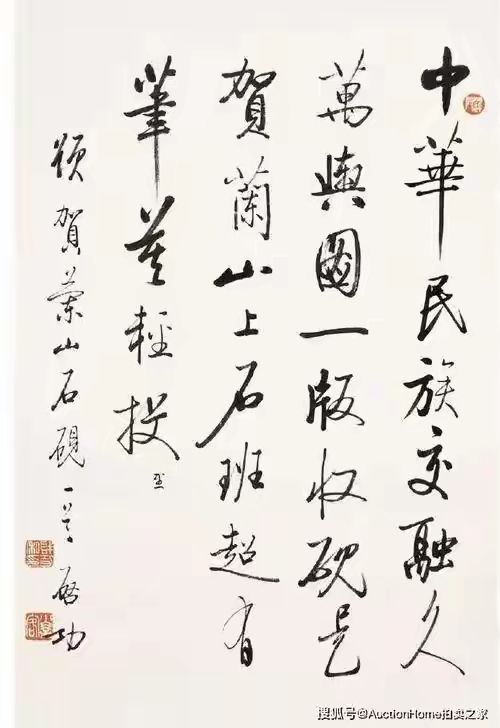 中華民族交融久
萬輿圖一版收硯是
賀蘭山上石班超有
筆莫輕投 里
賀蘭山石硯一首 啟功
搜狐号@AuctionHome拍卖之家